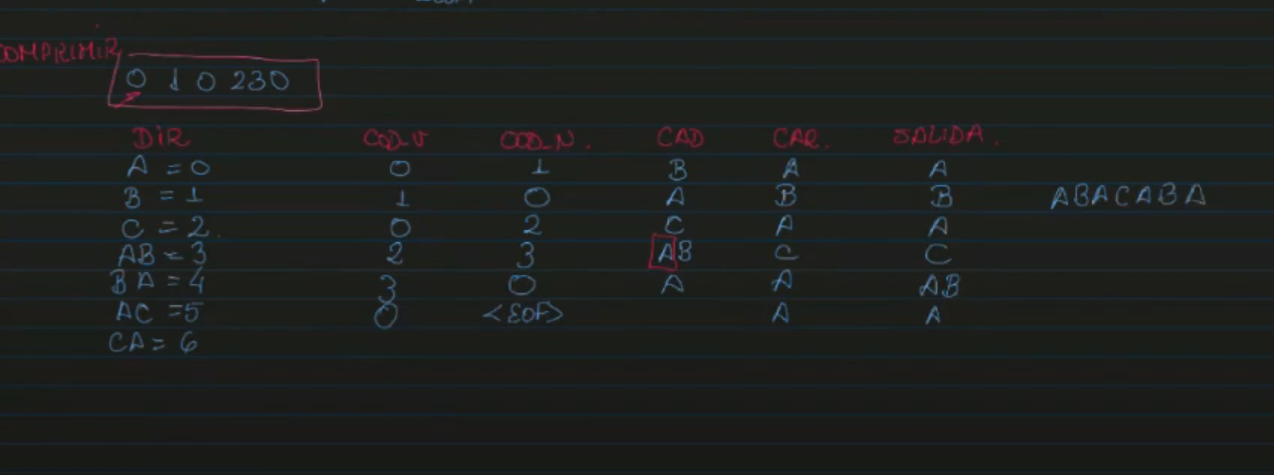 COMPRIMIR
0 1 0 230
DIR COD_V COD_N. CAD CAR. SALIDA.
A = 0 0 1 B A A
B = 1 1 0 A B B ABACABA
C = 2. 0 2 C A A
AB = 3 2 3 AB C C
BA = 4 3 0 A A AB
AC = 5 0 <EOF> A A
CA = 6